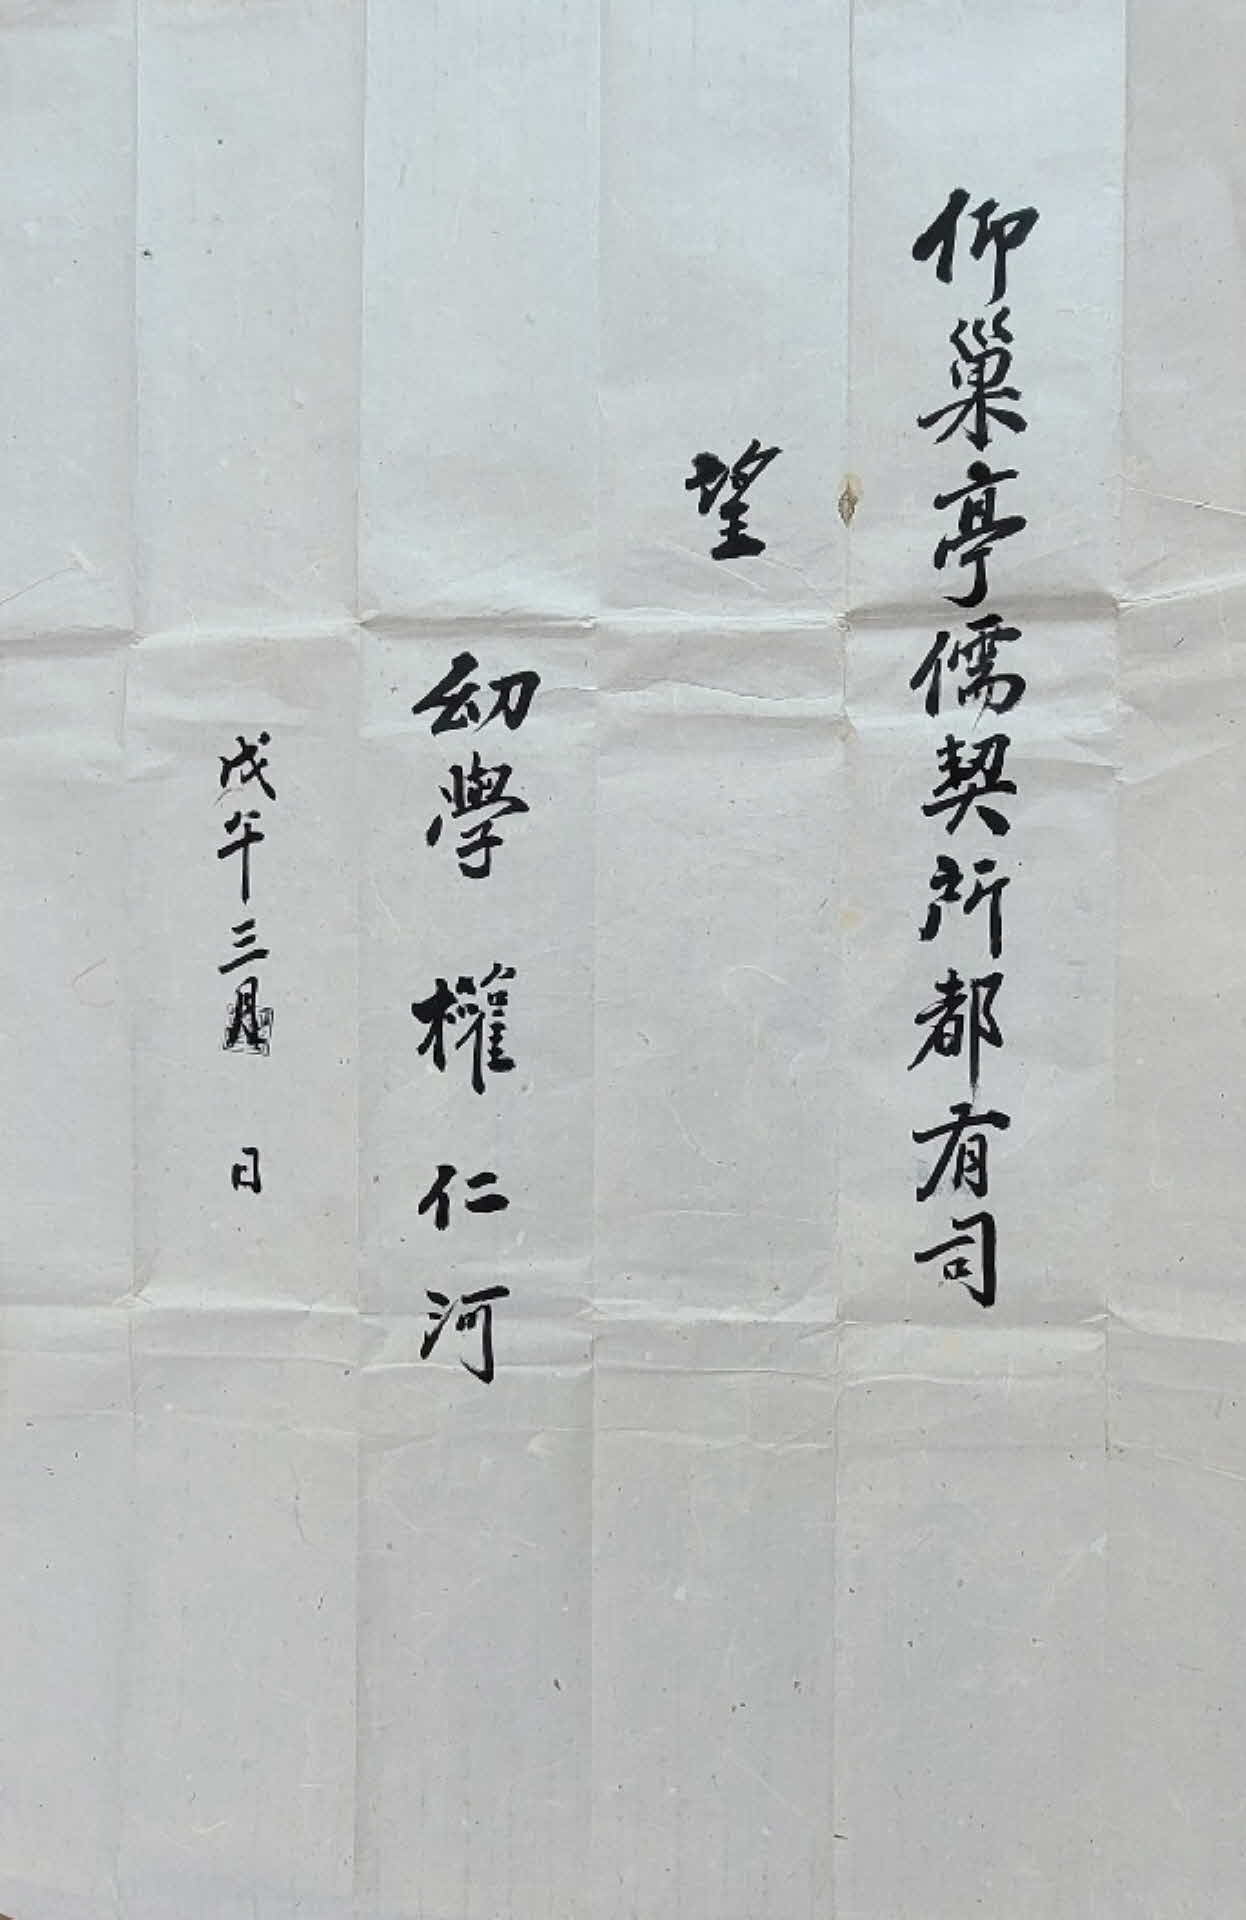 仰巢亭儒契所都有司
望
幼學 權仁河
戊午三月 日